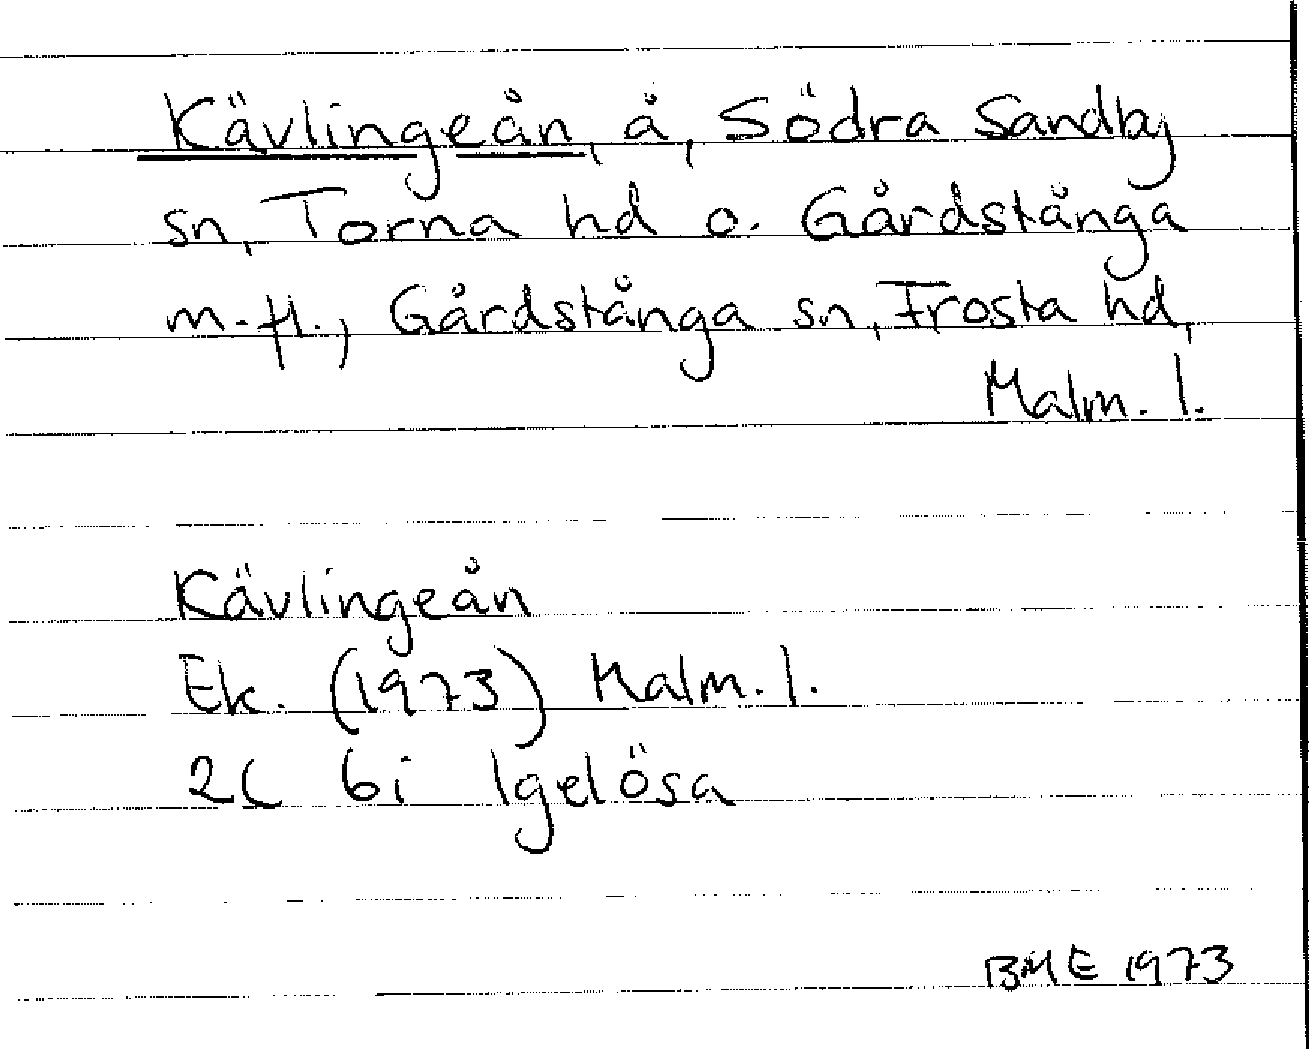 Kävlingeån, å, Södra Sandby
sn, Torna hd o. Gårdstånga
m.fl., Gårdstånga sn, Frosta hd,
Malm. l.
Kävlingeån
Ek. (1973) Malm. l.
2C 6i Igelösa
BME 1973